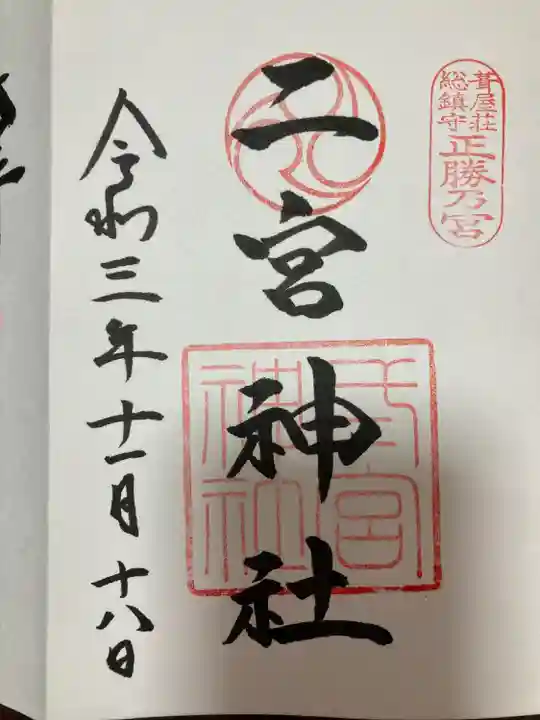 葺屋荘
総鎮守
正勝乃宮
二宮神社
二宮
神社
令和三年十一月十八日